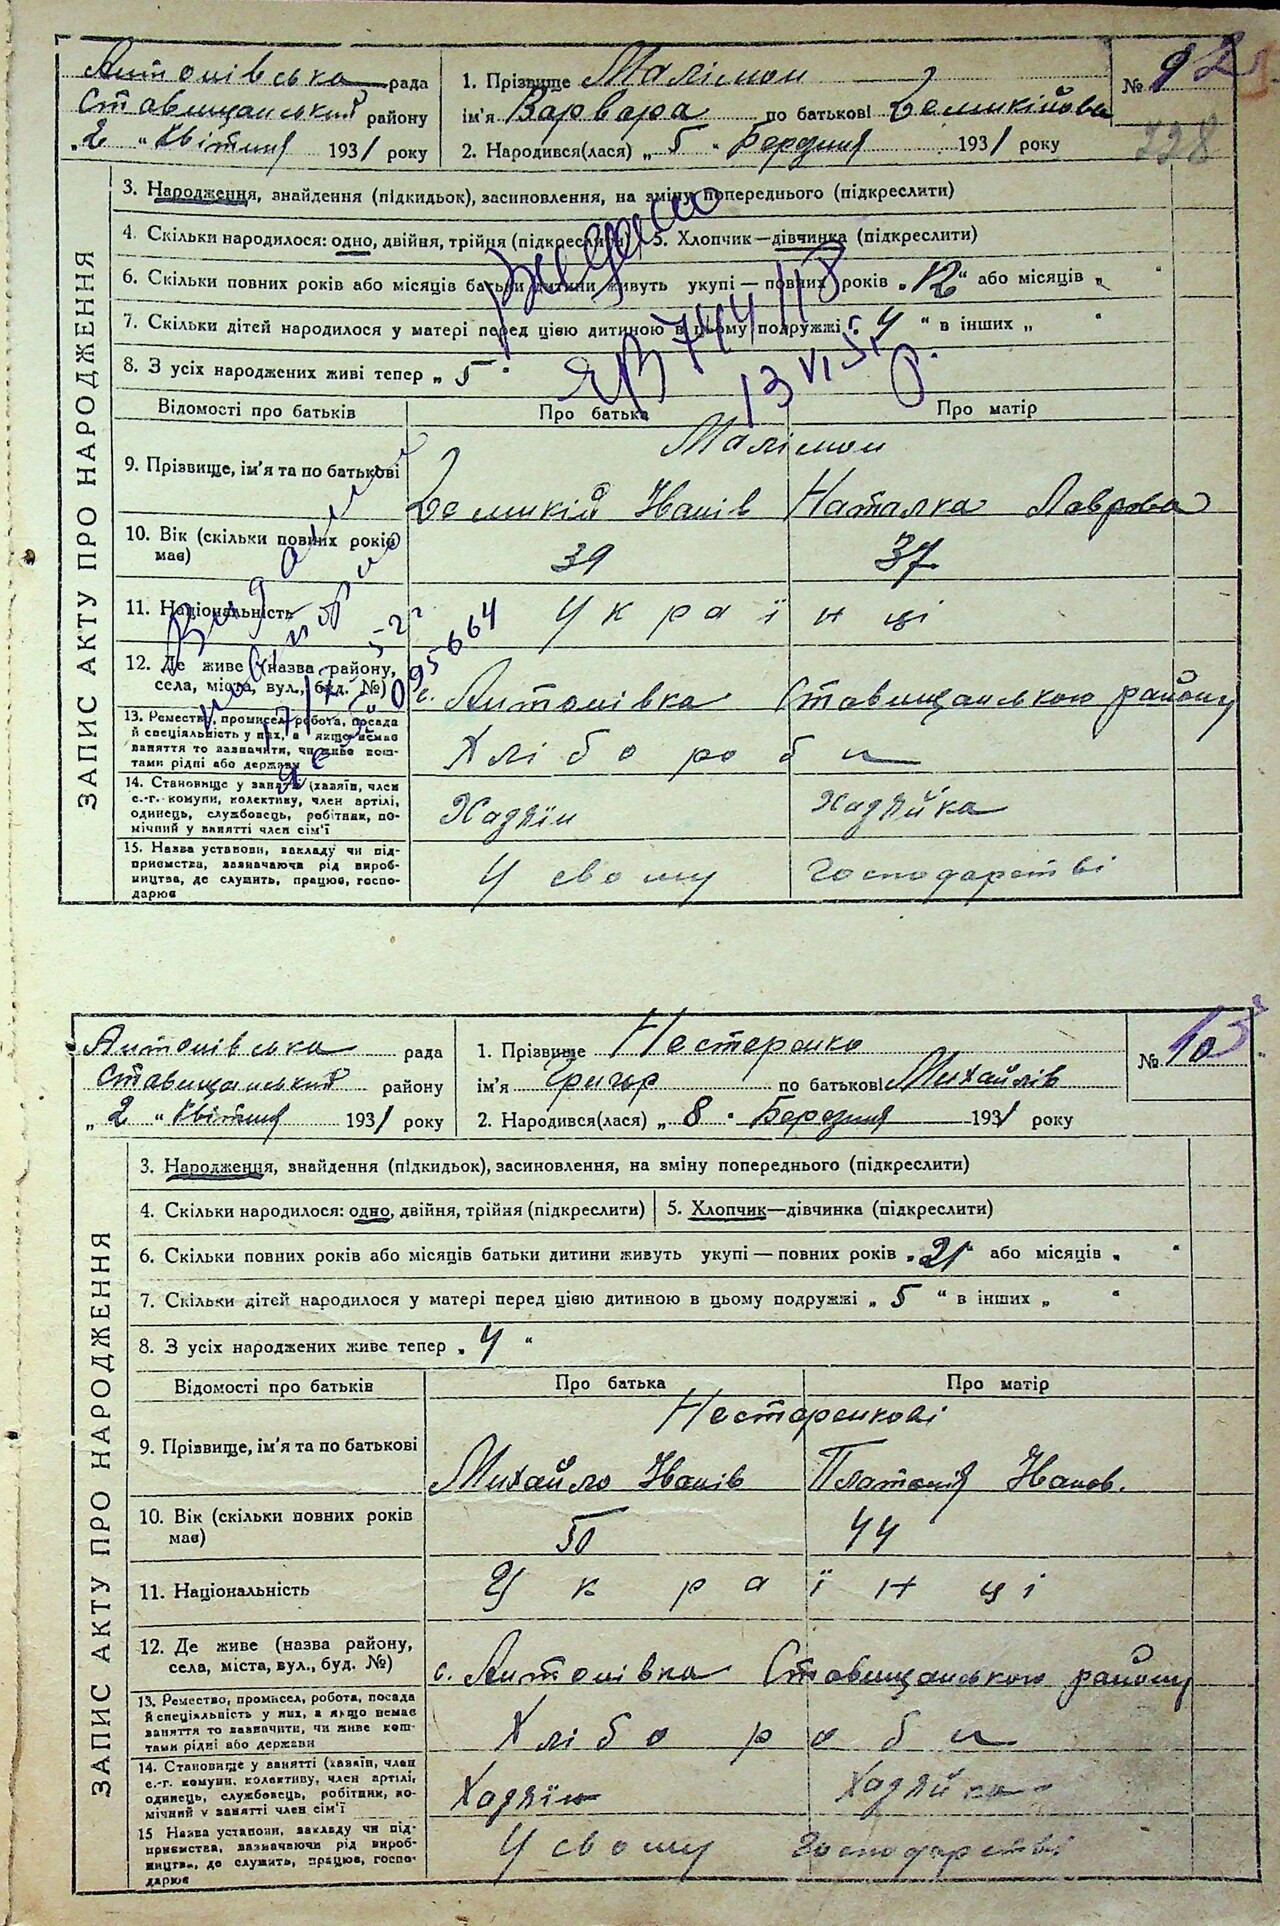 Антонівська рада
Ставищанський району
„2“ Квітня 1931 року
1. Прізвище Малімон
ім'я Варвара по батькові Демикійова
2. Народився(лася) „5“ Березня 1931 року
№ 9
228
ЗАПИС АКТУ ПРО НАРОДЖЕННЯ
3. Народження, знайдення (підкидьок), засиновлення, на зміну попереднього (підкреслити)
4. Скільки народилося: одно, двійня, трійня (підкреслити) 5. Хлопчик—дівчинка (підкреслити)
6. Скільки повних років або місяців батьки дитини живуть укупі — повних років „12“ або місяців „ “
7. Скільки дітей народилося у матері перед цією дитиною в цьому подружжі „4“ в інших „ “
8. З усіх народжених живі тепер „5“
ЯВ 744118
13 VI 51 р.
Відомості про батьків Про батька Про матір
Малімон
9. Прізвище, ім'я та по батькові Демикій Іванів Наталка Лаврова
10. Вік (скільки повних років має) 39 37
11. Національність Українці
12. Де живе (назва району, села, міста, вул., буд. №) с. Антонівка Ставищанською району
13. Ремество, промисел, робота, посада
й спеціяльність у них, а якщо немає
заняття то зазначити, чи живе кош-
тами рідні або держави
Хлібороби
14. Становище у занятті (хазяїн, член
с.-г. комуни, колективу, член артілі,
одинець, службовець, робітник, по-
мічний у занятті член сім'ї
Хазяїн Хазяйка
15. Назва установи, закладу чи під-
приємства, зазначаючи рід вироб-
ництва, де служить, працює, госпо-
дарює
У свому господарстві
Видано
повторно
095664
Антонівська рада
Ставищанський району
„2“ Квітня 1931 року
1. Прізвище Нестеренко
ім'я Григор по батькові Михайлів
2. Народився(лася) „8“ Березня 1931 року
№ 10
ЗАПИС АКТУ ПРО НАРОДЖЕННЯ
3. Народження, знайдення (підкидьок), засиновлення, на зміну попереднього (підкреслити)
4. Скільки народилося: одно, двійня, трійня (підкреслити) 5. Хлопчик—дівчинка (підкреслити)
6. Скільки повних років або місяців батьки дитини живуть укупі — повних років „21“ або місяців „ “
7. Скільки дітей народилося у матері перед цією дитиною в цьому подружжі „5“ в інших „ “
8. З усіх народжених живе тепер „4“
Відомості про батьків Про батька Про матір
Нестеренкові
9. Прізвище, ім'я та по батькові Михайло Іванів Платонія Іванов.
10. Вік (скільки повних років має) 50 44
11. Національність Українці
12. Де живе (назва району, села, міста, вул., буд. №) с. Антонівка Ставищанською району
13. Ремество, промисел, робота, посада
й спеціяльність у них, а якщо немає
заняття то зазначити, чи живе кош-
тами рідні або держави
Хлібороби
14. Становище у занятті (хазяїн, член
с.-г. комуни, колективу, член артілі,
одинець, службовець, робітник, по-
мічний у занятті член сім'ї
Хазяїн Хазяйка
15 Назва установи, закладу чи під-
приємства, зазначаючи рід вироб-
ництва, де служить, працює, госпо-
дарює
У свому господарстві